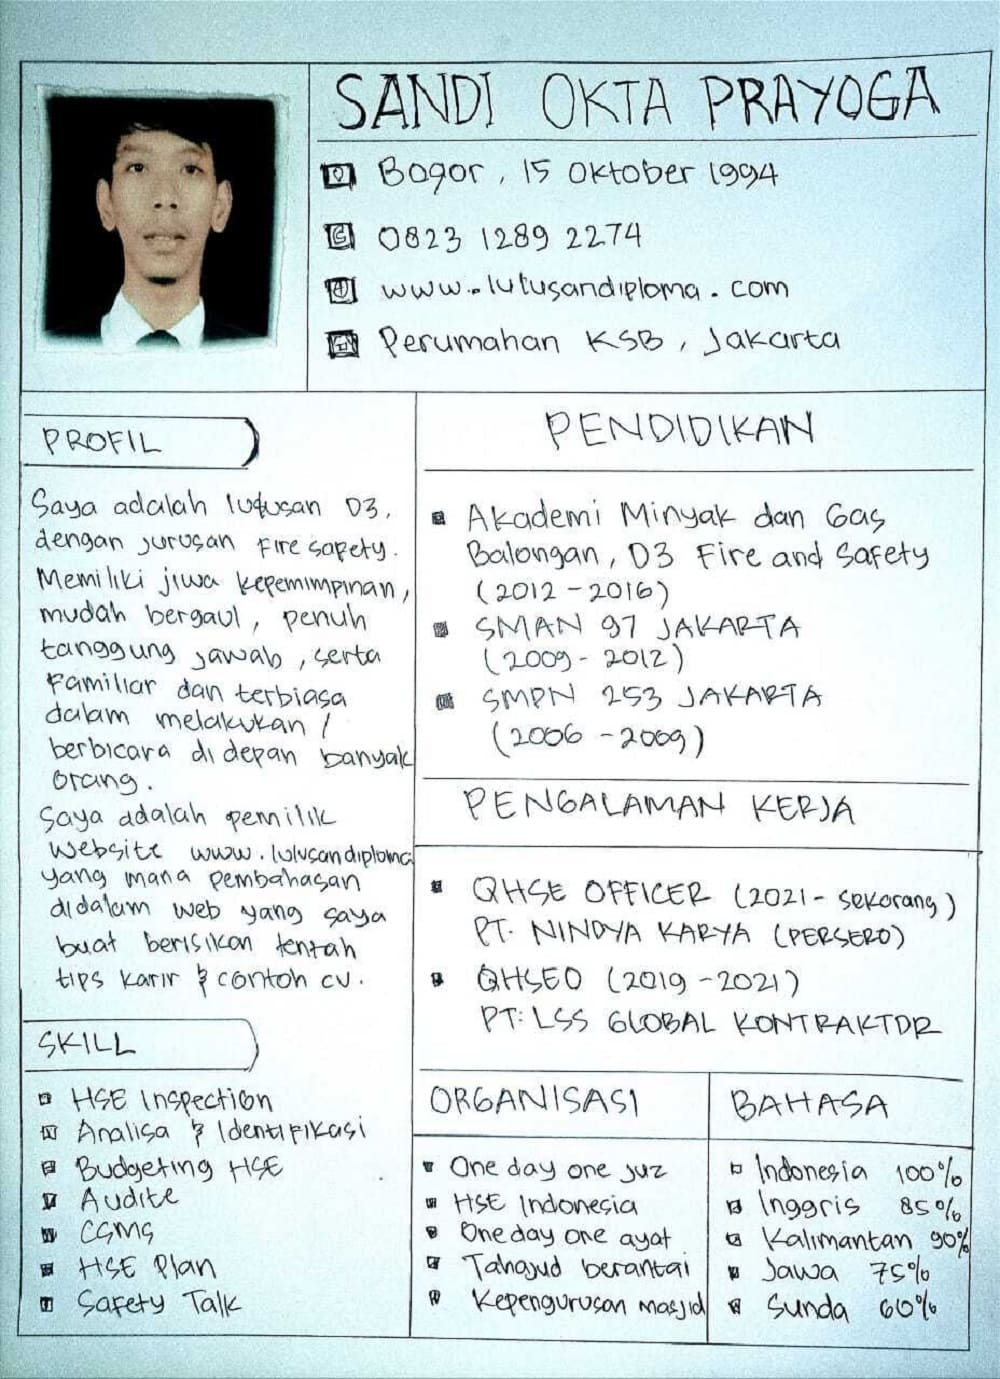 SANDI OKTA PRAYOGA
Bogor, 15 Oktober 1994
0823 1289 2274
www.lulusandiploma.com
Perumahan KSB, Jakarta
PROFIL
Saya adalah lulusan D3,
dengan jurusan Fire safety.
Memiliki jiwa kepemimpinan,
mudah bergaul, penuh
tanggung jawab, serta
Familiar dan terbiasa
dalam melakukan /
berbicara di depan banyak
orang.
Saya adalah pemilik
Website www.lulusandiploma
yang mana pembahasan
didalam web yang saya
buat berisikan tentah
tips karir & contoh cv.
SKILL
HSE Inspection
Analisa & Identifikasi
Budgeting HSE
Audite
CSMS
HSE Plan
Safety Talk
PENDIDIKAN
Akademi Minyak dan Gas
Balongan, D3 Fire and Safety
(2012 - 2016)
SMAN 97 JAKARTA
(2009 - 2012)
SMPN 253 JAKARTA
(2006 - 2009)
PENGALAMAN KERJA
QHSE OFFICER (2021 - Sekarang)
PT. NINDYA KARYA (PERSERO)
QHSEO (2019 - 2021)
PT. LSS GLOBAL KONTRAKTOR
ORGANISASI
One day one juz
HSE Indonesia
One day one ayat
Tahajud berantai
Kepengurusan masjid
BAHASA
Indonesia 100%
Inggris 85%
Kalimantan 90%
Jawa 75%
Sunda 60%